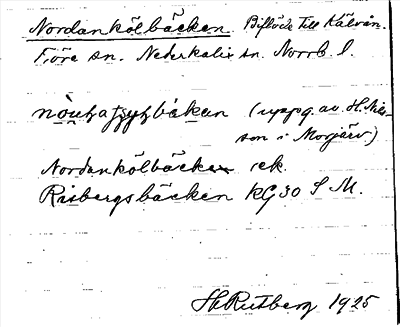 Nordankölbäcken. Biflöde till Kälvån.
Töre sn. Nederkalix sn. Norrb. l.
bäkan (uppg. av H. Nils-
son i Morjärv.)
Nordankölbäcken ek.
Risbergsbäcken KG30 S M.
H Rutberg 1925